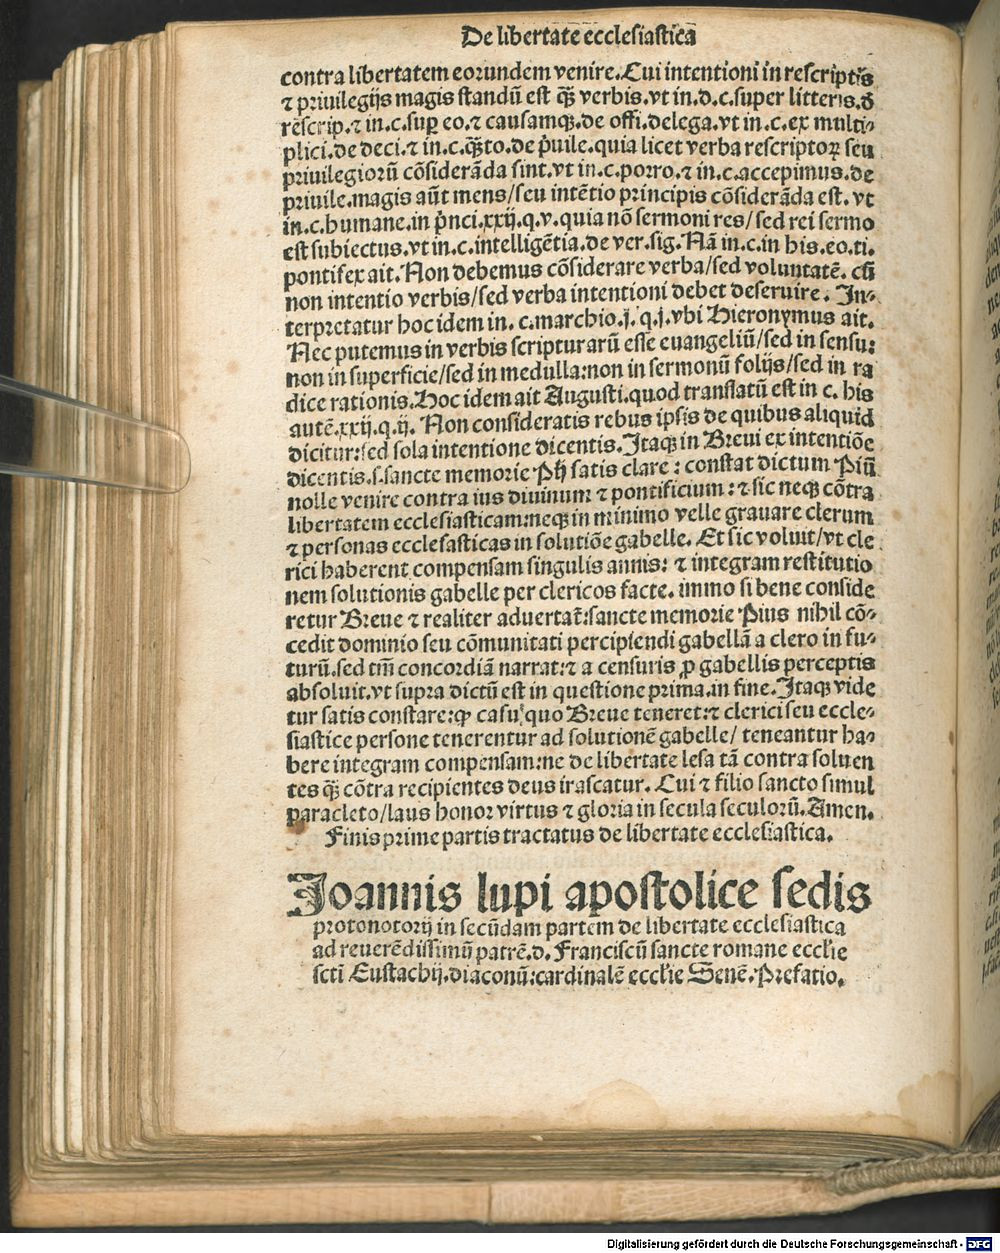 De libertate ecclesiastica
contra libertatem eorundem venire. Cui intentioni in rescriptis
⁊ priuilegijs magis standū est q̄ꝫ verbis. vt in. d. c. super litteris. d̄
rescrip. ⁊ in. c. sup̱ eo. ⁊ causamqꝫ. de offi. delega. vt in. c. ex multi⸗
plici. de deci. ⁊ in c. q̄ꝫto. de p̄uile. quia licet verba rescriptoꝝ seu
priuilegiorū cōsiderāda sint. vt in. c. porro. ⁊ in. c. accepimus. de
priuile. magis aūt mens/ seu intētio principis cōsiderāda est. vt
in. c. humane. in p̄nci. xxij. q. v. quia nō sermoni res/ sed rei sermo
est subiectus. vt in. c. intelligētia. de ver. sig. Nā in. c. in his. eo. ti.
pontifex ait. Non debemus cōsiderare verba/ sed voluntatē. cū
non intentio verbis/ sed verba intentioni debet deseruire. In⸗
terpretatur hoc idem in. c. marchio. j. q. j. vbi Hieronymus ait.
Nec putemus in verbis scripturarū esse euangeliū/ sed in sensu:
non in superficie/ sed in medulla: non in sermonū folijs/ sed in ra
dice rationis. Hoc idem ait Augusti. quod translatū est in c. his
autē. xxij. q. ij. Non consideratis rebus ipsis de quibus aliquid
dicitur: sed sola intentione dicentis. Itaqꝫ in Breui ex intentiōe
dicentis. s. sancte memorie Pij satis clare: constat dictum Piū
nolle venire contra ius diuinum ⁊ pontificium: ⁊ sic neqꝫ cōtra
libertatem ecclesiasticam: neqꝫ in minimo velle grauare clerum
⁊ personas ecclesasticas in solutiōe gabelle. Et sic voluit/ vt cle
rici haberent compensam singulis annis: ⁊ integram restitutio
nem solutionis gabelle per clericos facte. immo si bene conside
retur Breue ⁊ realiter aduertat̄: sancte memorie Pius nihil cō⸗
cedit dominio seu cōmunitati percipiendi gabellā a clero in fu⸗
turū. sed tm̄ concordiā narrat: ⁊ a censuris ꝓ gabellis perceptis
absoluit. vt supra dictū est in questione prima. in fine. Itaqꝫ vide
tur satis constare: ꝙ casu quo Breue teneret: ⁊ clerici seu eccle⸗
siastice persone tenerentur ad solutionē gabelle/ teneantur ha⸗
bere integram compensam: ne de libertate lesa tā contra soluen
tes q̄ꝫ cōtra recipientes deus irascatur. Cui ⁊ filio sancto simul
paracleto/ laus honor virtus ⁊ gloria in secula seculorū. Amen.
Finis prime partis tractatus de libertate ecclesiastica.
Joannis lupi apostolice sedis
protonotorij in secūdam partem de libertate ecclesiastica
ad reuerēdissimū patrē. d. Franciscū sancte romane eccl'ie
scti Eustachij. diaconū: cardinalē eccl'ie Senē. Prefatio.
Digitalisierung gefördert durch die Deutsche Forschungsgemeinschaft - DFG